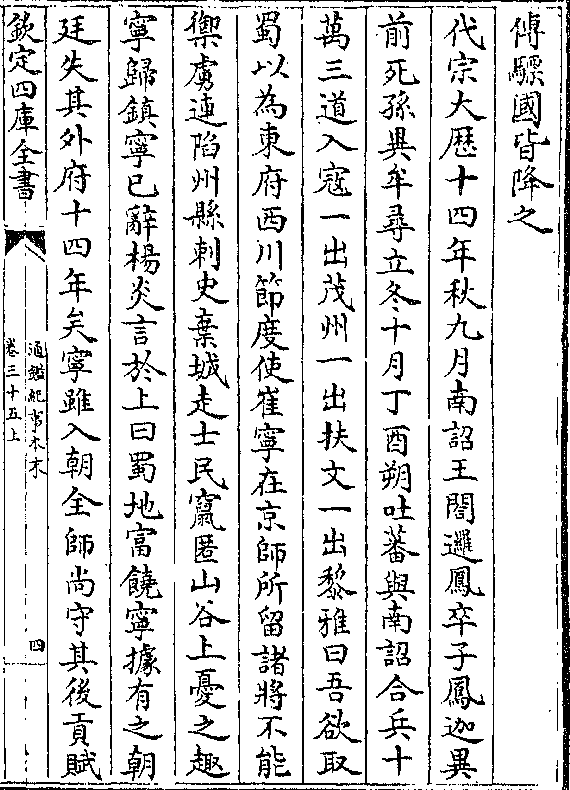 傅驃國皆降之
代宗大厯十四年秋九月南詔王閤邏鳳卒子鳳迦異
前死孫異牟尋立冬十月丁酉朔吐蕃與南詔合兵十
萬三道入寇一出茂州一出扶文一出黎雅曰吾欲取
蜀以為東府西川節度使崔寧在京師所留諸將不能
禦虜連陷州縣刺史棄城走士民竄匿山谷上憂之趣
寧歸鎮寧已辭楊炎言於上曰蜀地富饒寧據有之朝
廷失其外府十四年矣寧雖入朝全師尚守其後貢賦
欽定四庫全書
通鑑紀事本末
卷三十五上
四